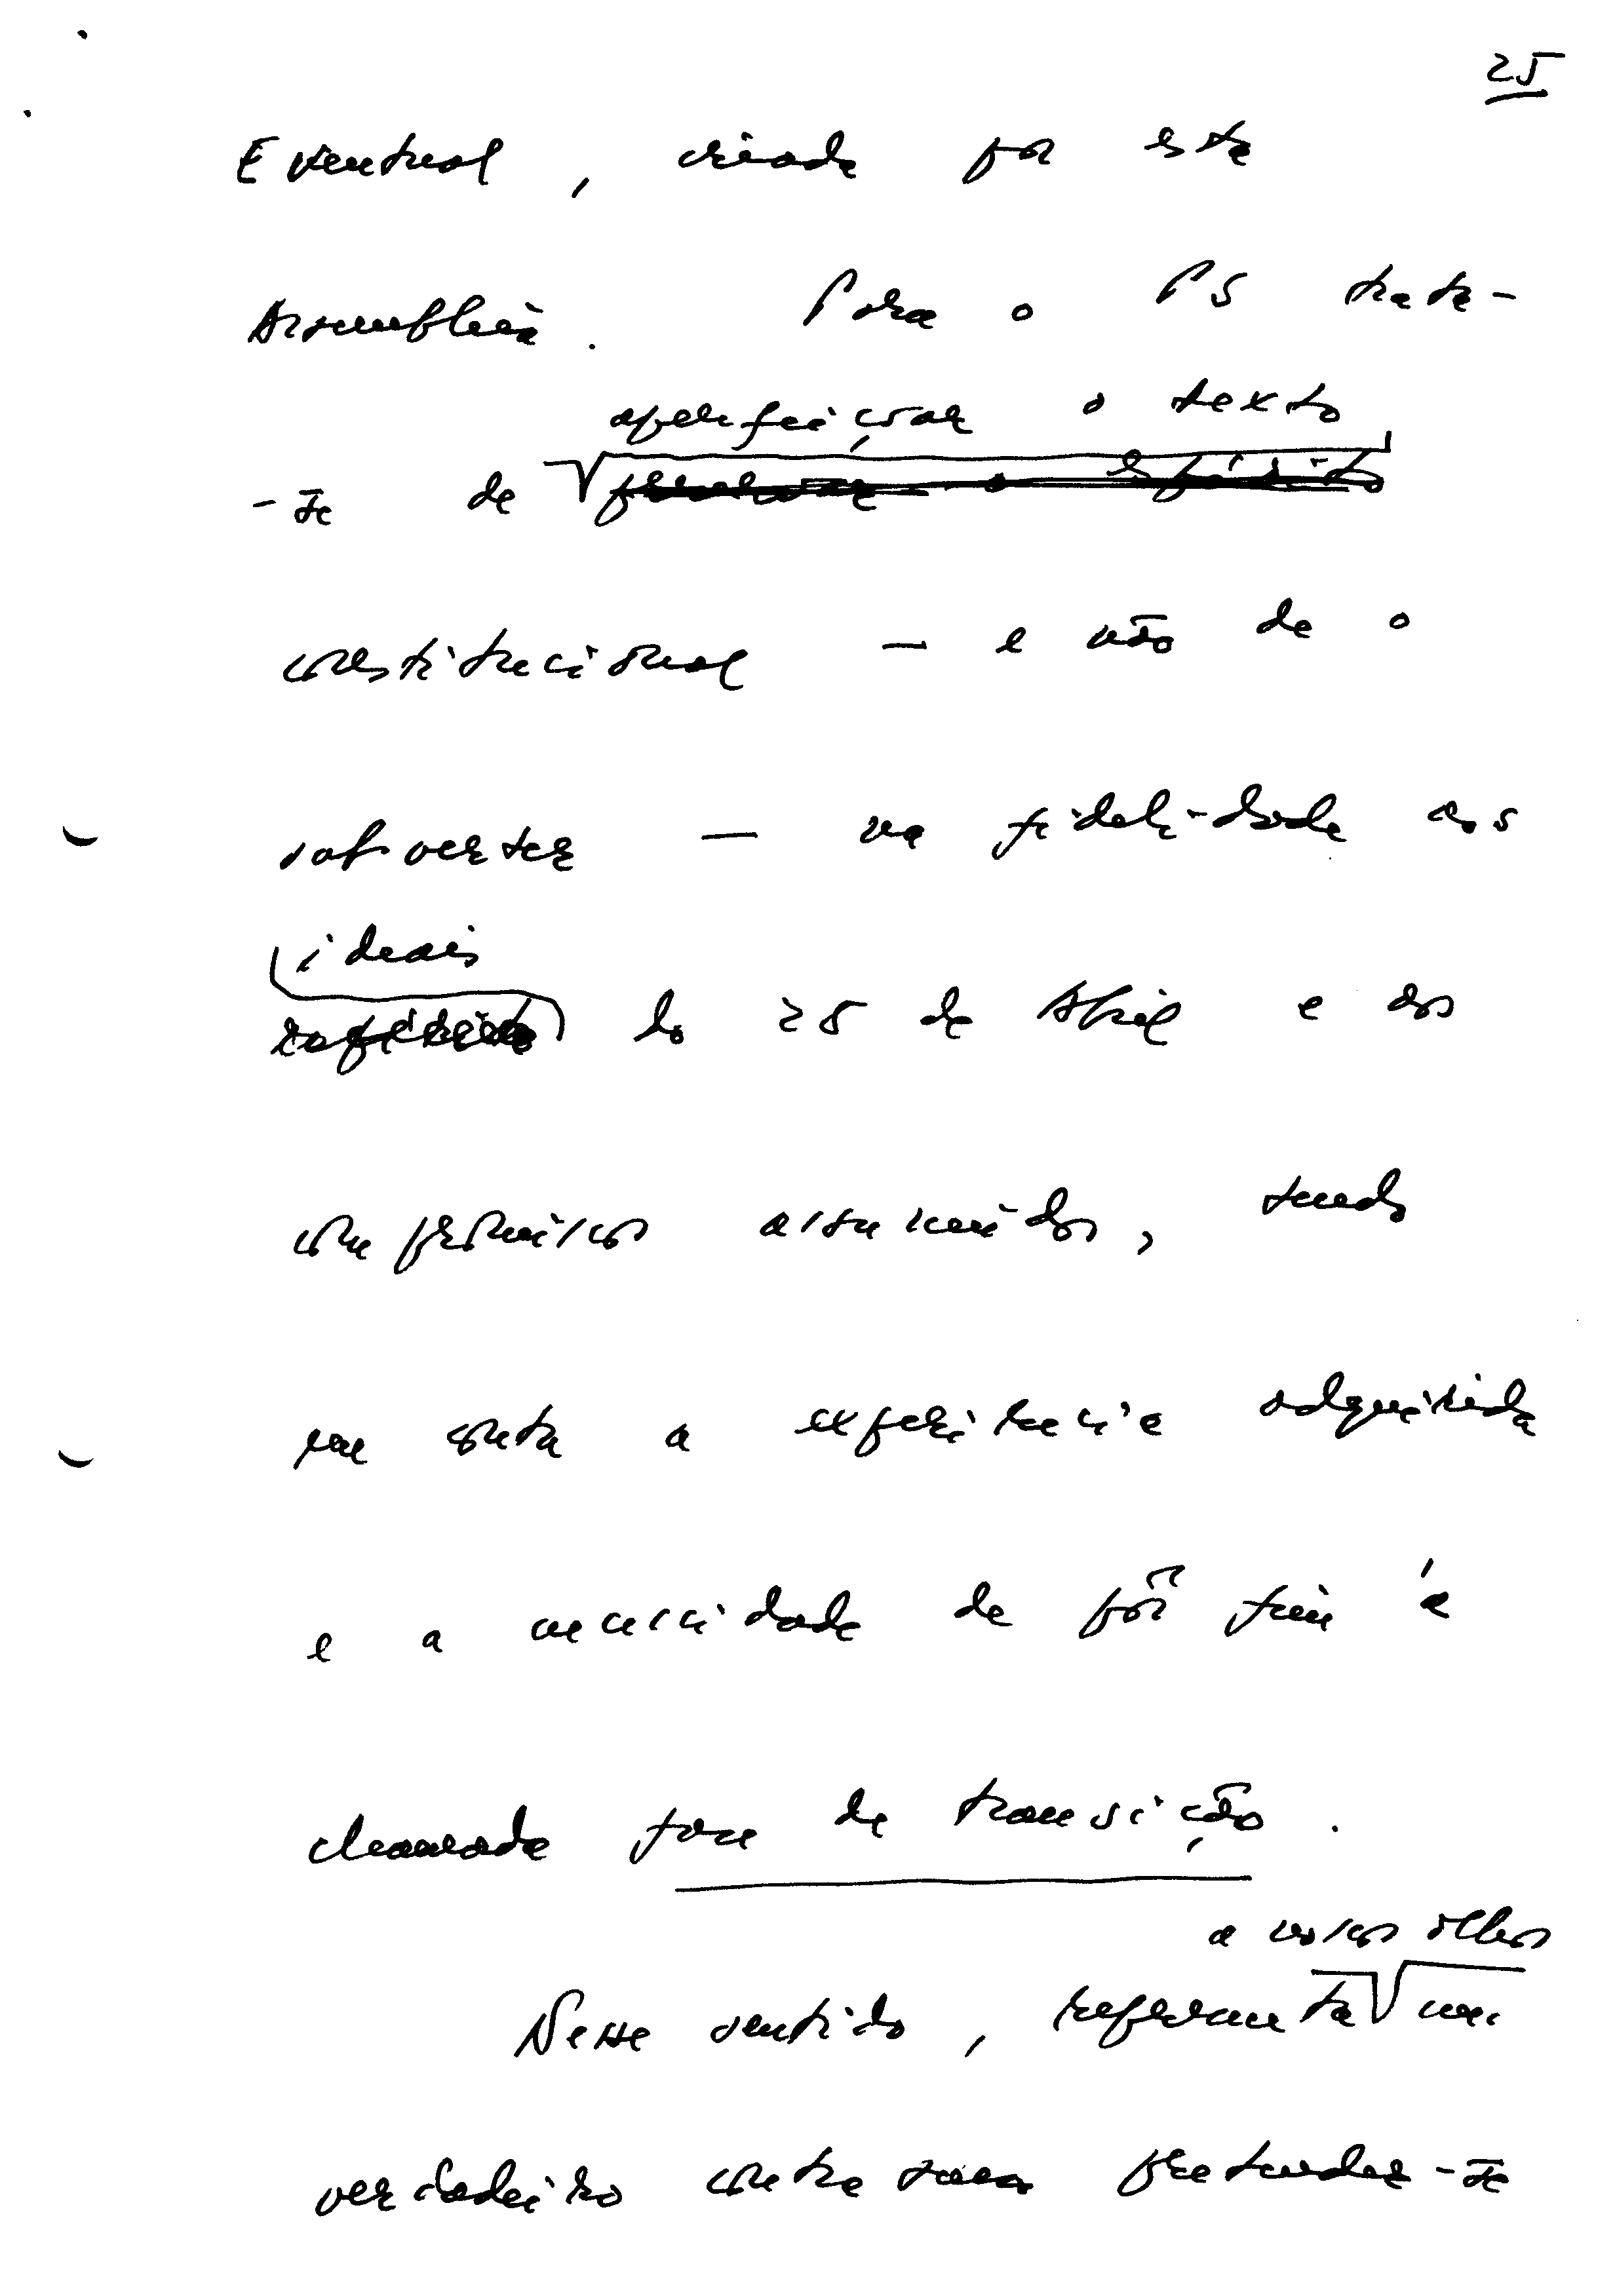 25
Eventual, criada por esta
Assembleia. Para o PS trata-
aperfeiçoar o texto
-se de
constitucional — e não de o
subverter — na fidelidade aos
ideais
do 25 de Abril e aos
compromissos assumidos, tendo
em conta a experiência adquirida
e a necessidade de pôr fim à
chamada fase de transição.
a nossos olhos
Nesse sentido, representa um
verdadeiro contra senso pretender-se